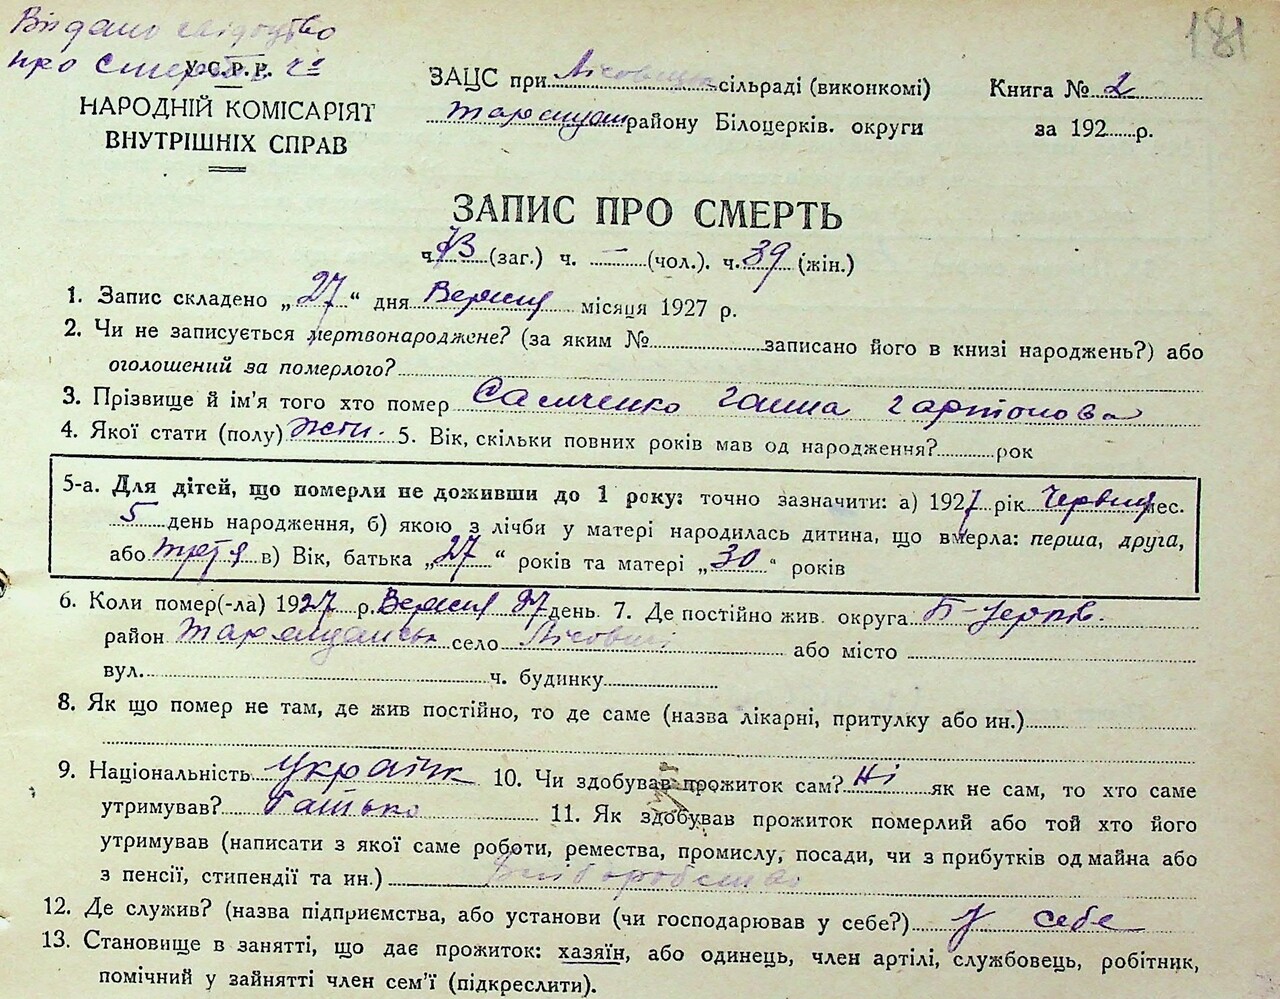 Видано свідоцтво
181
про смерть ч²
У.С.Р.Р.
НАРОДНІЙ КОМІСАРІЯТ
ВНУТРІШНІХ СПРАВ
ЗАЦС при сільраді (виконкомі)
району Білоцерків. округи
Книга № 2
за 192 р.
ЗАПИС ПРО СМЕРТЬ
ч. 73 (заг.) ч. — (чол.). ч. 39 (жін.)
1. Запис складено „27“ дня Вересня місяця 1927 р.
2. Чи не записується мертвонароджене? (за яким № записано його в книзі народжень?) або
оголошений за померлого?
3. Прізвище й ім'я того хто помер Самченко Ганна
4. Якої стати (полу) 5. Вік, скільки повних років мав од народження? рок
5-а. Для дітей, що померли не доживши до 1 року: точно зазначити: а) 1927 рік Червня мес.
5 день народження, б) якою з лічби у матері народилась дитина, що вмерла: перша, друга,
або третя в) Вік, батька „27“ років та матері „30“ років
6. Коли помер(-ла) 1927 р. Вересня 27 день. 7. Де постійно жив. округа Б-Церків.
район село або місто
вул. ч. будинку
8. Як що помер не там, де жив постійно, то де саме (назва лікарні, притулку або ин.)
9. Національність україн 10. Чи здобував прожиток сам? Ні як не сам, то хто саме
утримував? батько 11. Як здобував прожиток померлий або той хто його
утримував (написати з якої саме роботи, ремества, промислу, посади, чи з прибутків од майна або
з пенсії, стипендії та ин.)
12. Де служив? (назва підприємства, або установи (чи господарював у себе?) у себе
13. Становище в занятті, що дає прожиток: хазяїн, або одинець, член артілі, службовець, робітник,
помічний у зайнятті член сем'ї (підкреслити).